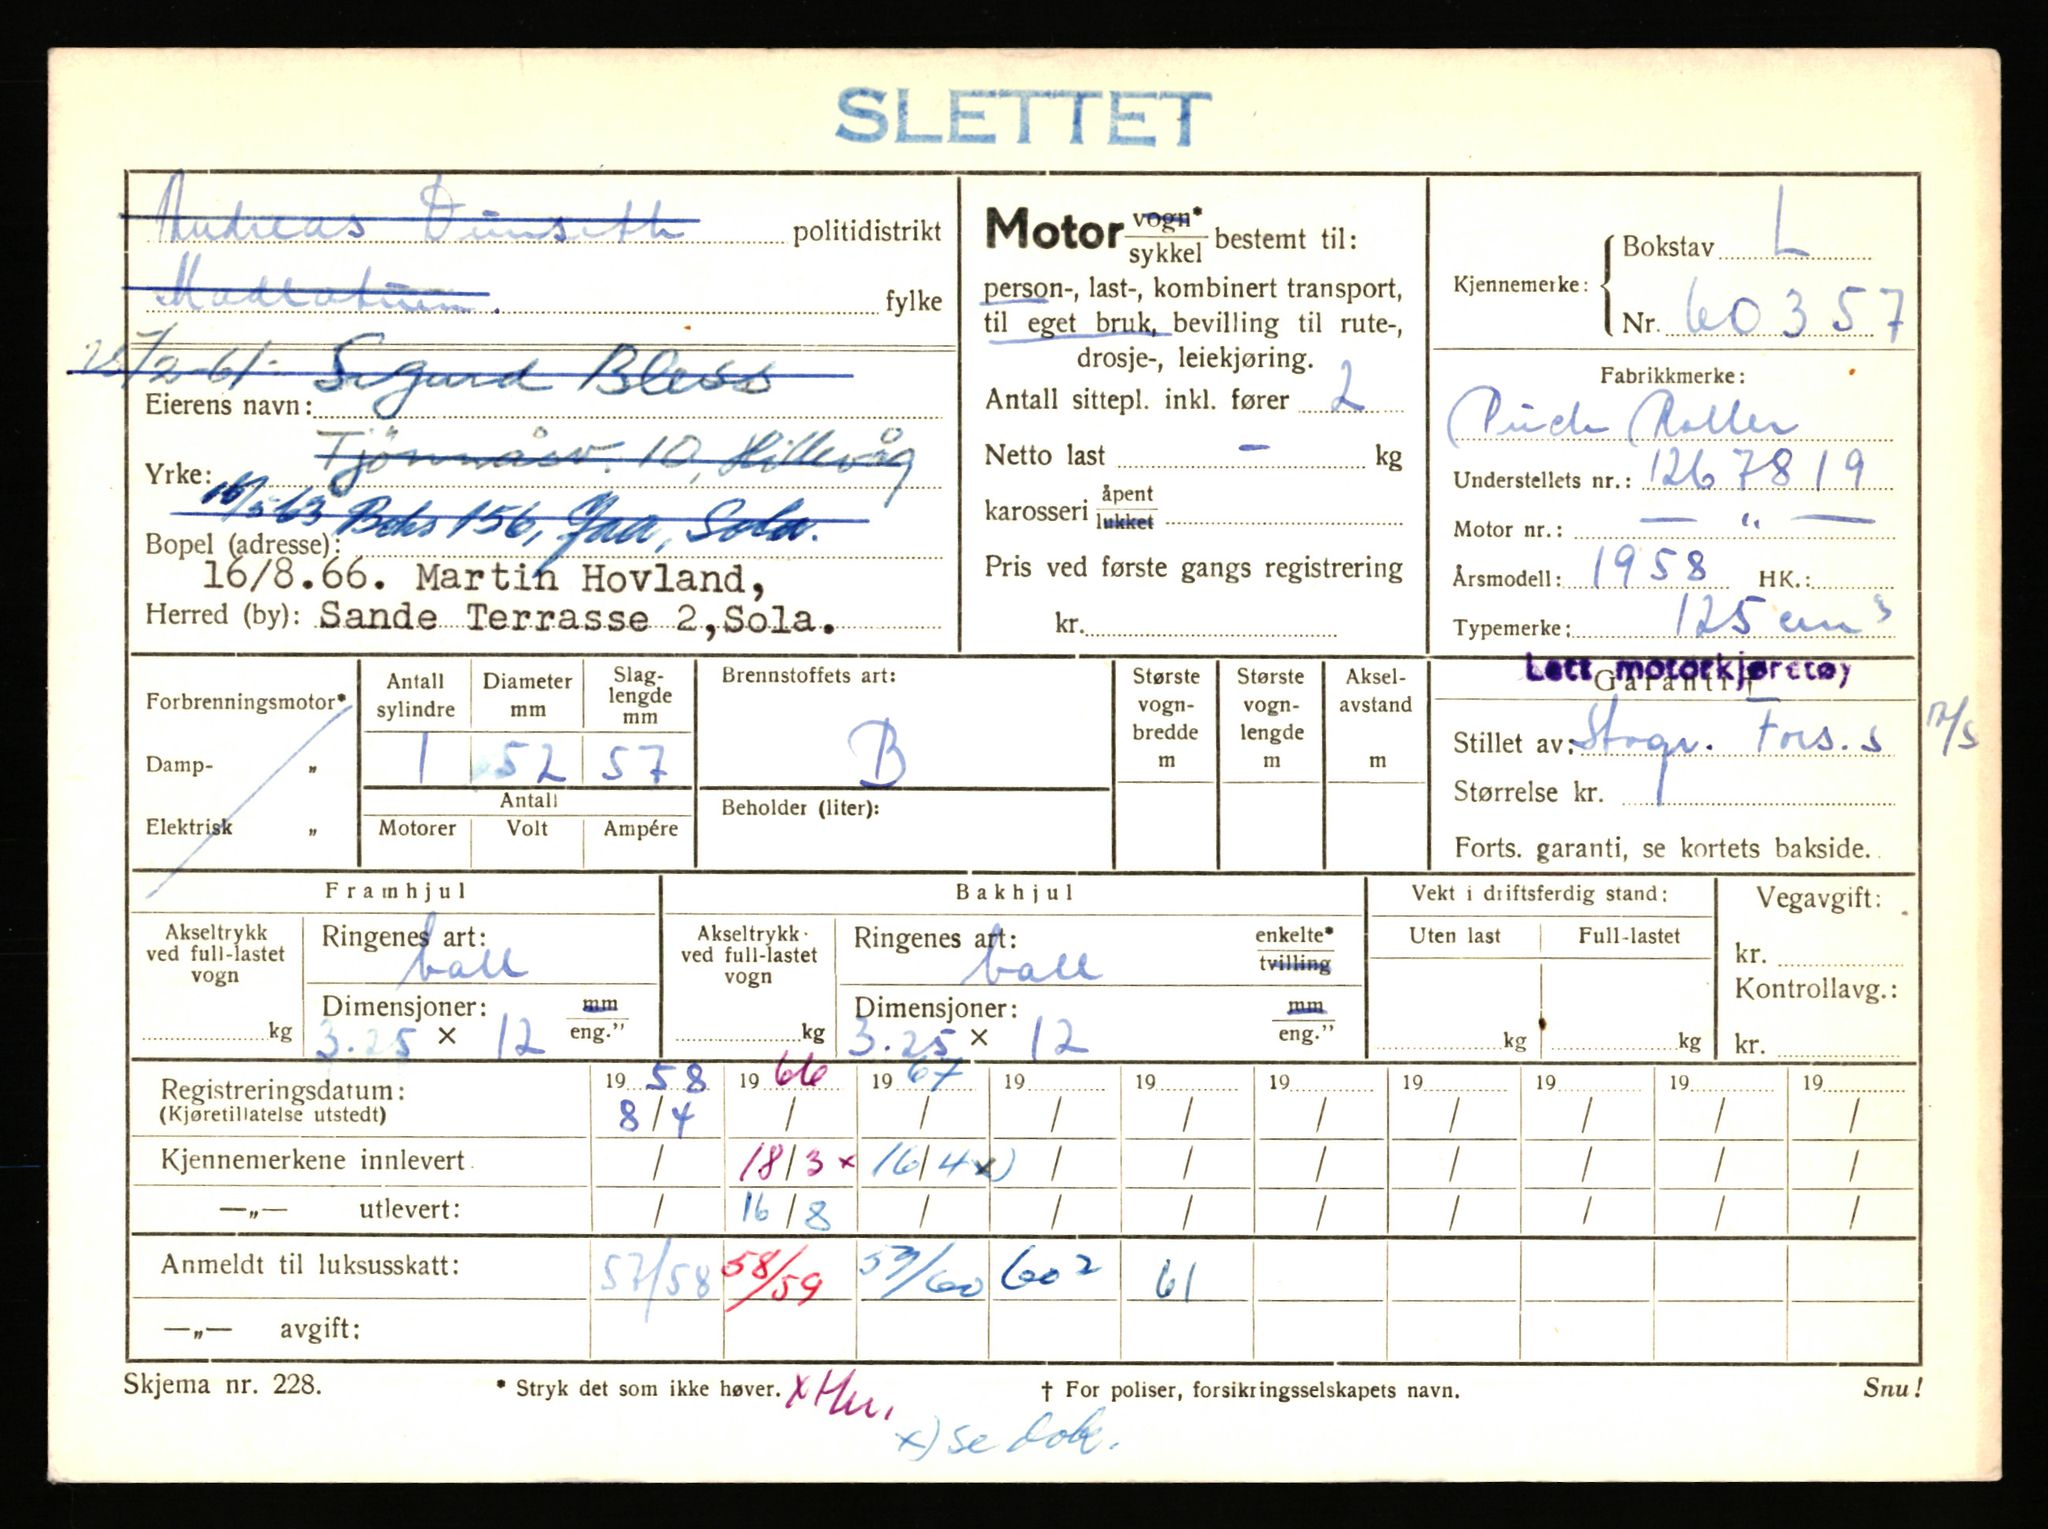 SLETTET
Andreas politidistrikt
fylke
Motor vogn* / sykkel bestemt til:
person-, last-, kombinert transport,
til eget bruk, bevilling til rute-,
drosje-, leiekjøring.
Antall sittepl. inkl. fører 2
Netto last – kg
karosseri åpent / lukket
Pris ved første gangs registrering
kr.
Kjennemerke: Bokstav L
Nr. 60357
Fabrikkmerke:
Puch Roller
Understellets nr.: 1267819
Motor nr.: — " —
Årsmodell: 1958 HK.:
Typemerke: 125 cm³
/2-61. Sigurd Bless
Eierens navn:
Tjønnåsv. 10, Hillevåg
Yrke:
63 Boks 156, Sola.
Bopel (adresse):
16/8.66. Martin Hovland,
Herred (by): Sande Terrasse 2, Sola.
Forbrenningsmotor*
Damp- „
Elektrisk „
Antall sylindre
Diameter mm
Slag-lengde mm
1 52 57
Antall
Motorer Volt Ampére
Brennstoffets art:
B
Beholder (liter):
Største vogn-bredde m
Største vogn-lengde m
Aksel-avstand m
Lett motorkjøretøy
Garanti
Stillet av: Fors. s
Størrelse kr.
Forts. garanti, se kortets bakside.
Framhjul
Akseltrykk ved full-lastet vogn
kg
Ringenes art: ball
Dimensjoner: mm / eng.”
3.25 × 12
Bakhjul
Akseltrykk ved full-lastet vogn
kg
Ringenes art: ball enkelte* / tvilling
Dimensjoner: mm / eng.”
3.25 × 12
Vekt i driftsferdig stand:
Uten last Full-lastet
kg kg
Vegavgift:
kr.
Kontrollavg.:
kr.
Registreringsdatum: 19 58 19 66 19 67 19 19 19 19 19 19 19
(Kjøretillatelse utstedt) 8/4 / / / / / / / / /
Kjennemerkene innlevert / 18/3 x 16/4 x) / / / / / / /
—„— utlevert: / 16/8 / / / / / / / /
Anmeldt til luksusskatt: 57/58 58/59 59/60 60² 61
—„— avgift:
Skjema nr. 228. * Stryk det som ikke høver. † For poliser, forsikringsselskapets navn. Snu!
x)se dok.